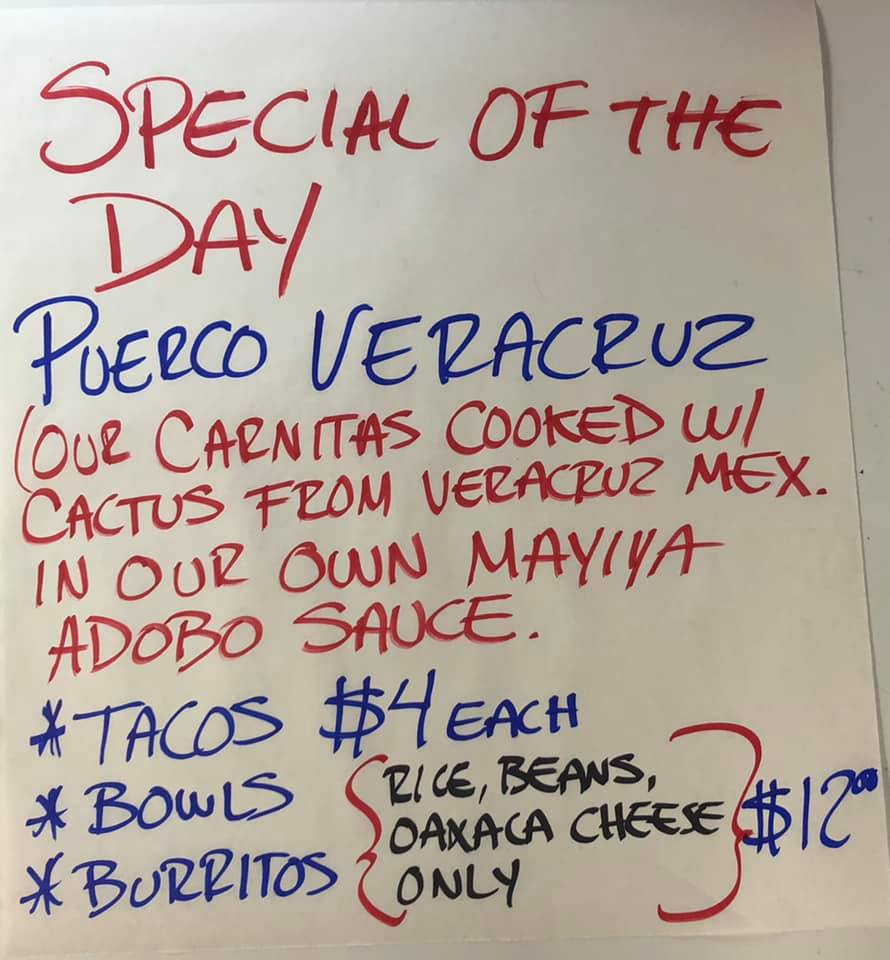 SPECIAL OF THE
DAY
PUERCO VERACRUZ
(OUR CARNITAS COOKED W/
CACTUS FROM VERACRUZ MEX.
IN OUR OWN MAYIYA
ADOBO SAUCE.
*TACOS $4 EACH
*BOWLS {RICE, BEANS,
OAXACA CHEESE} $12⁰⁰
*BURRITOS ONLY